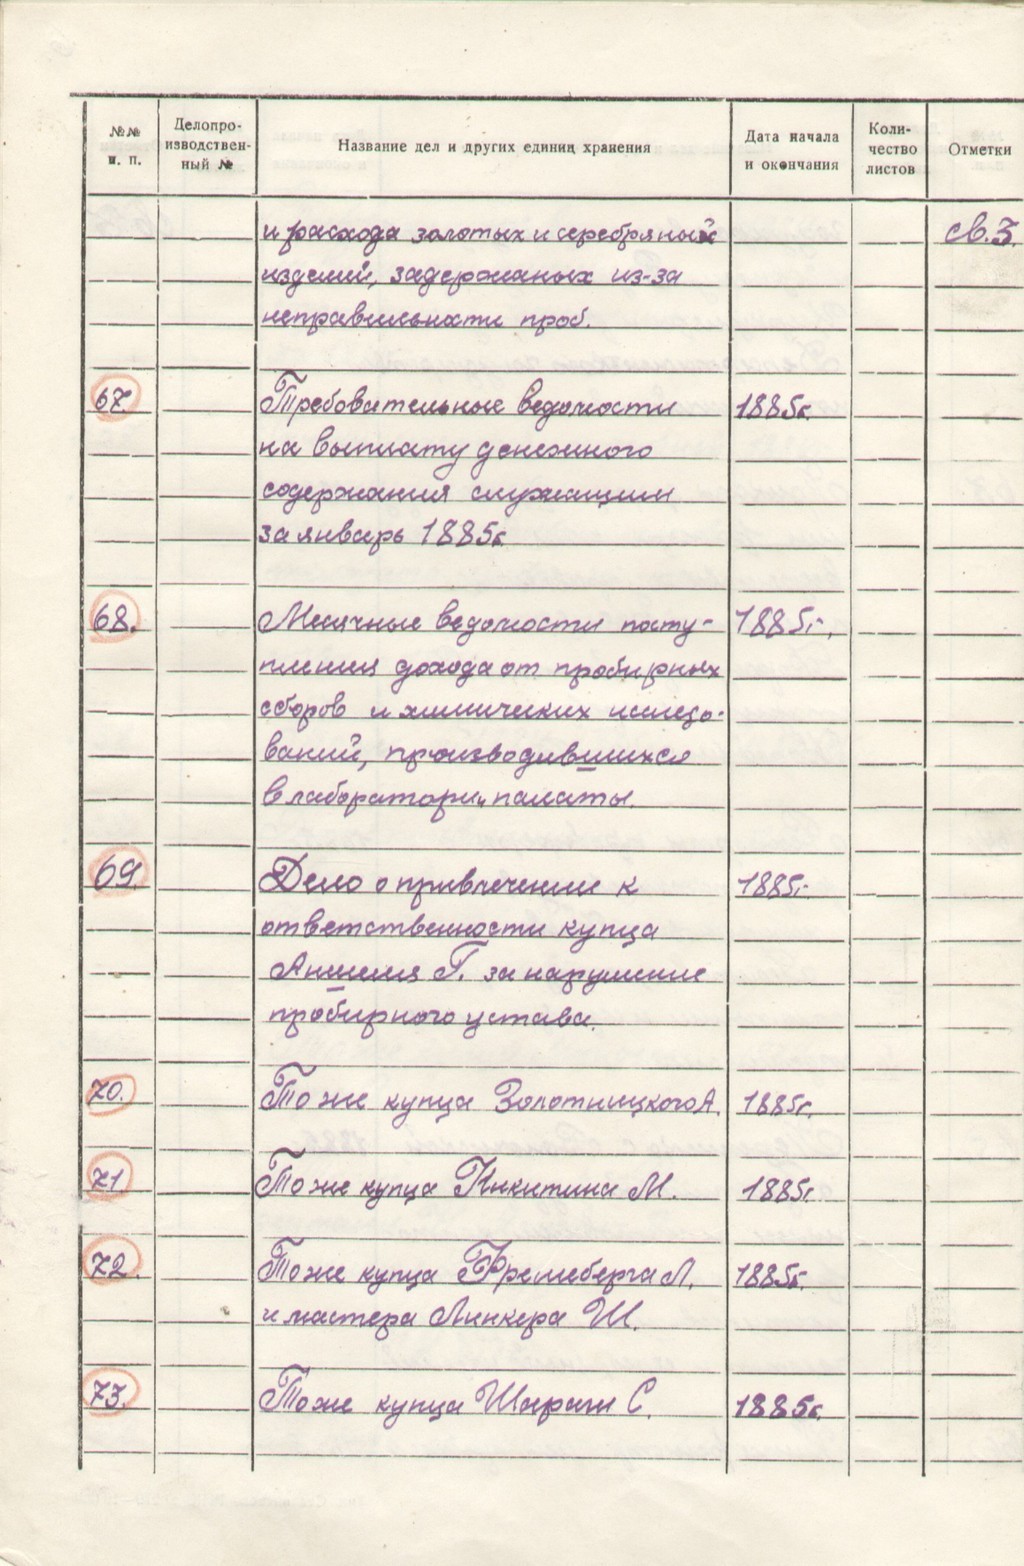 №№ п. п.
Делопро-
изводствен-
ный №
Название дел и других единиц хранения
Дата начала
и окончания
Коли-
чество
листов
Отметки
и расхода золотых и серебряных св. 3.
изделий, задержаных из-за
неправильности проб.
67. Требовательные ведомости 1885г.
на выплату денежного
содержания служащим
за январь 1885г.
68. Месячные ведомости посту- 1885г.
пления дохода от пробирных
сборов и химических исследо-
ваний, производившихся
в лаборатории палаты.
69. Дело о привлечении к 1885г.
ответственности купца
Аншеля Г. за нарушение
пробирного устава.
70. То же купца Золотницкого А. 1885г.
71 То же купца Никитина М. 1885г.
72. То же купца А. 1885г.
и мастера Линкера Ш.
73. То же купца С. 1885г.